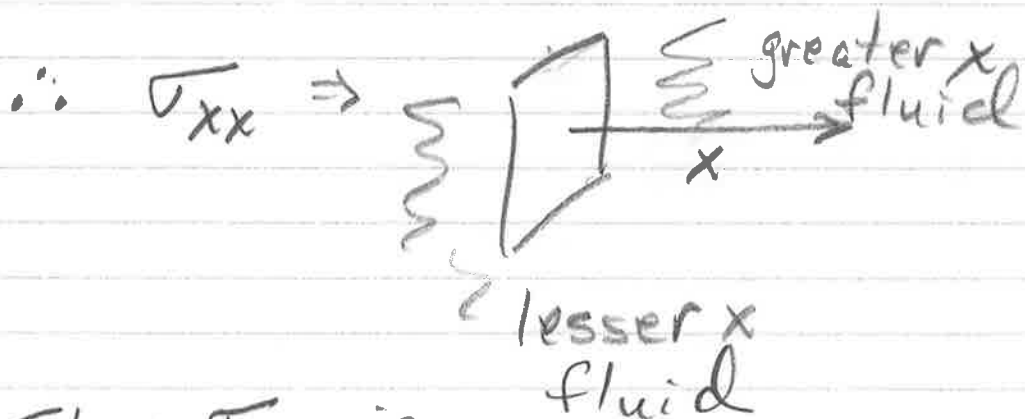 ∴ σxx ⇒
greater x
fluid
x
lesser x
fluid